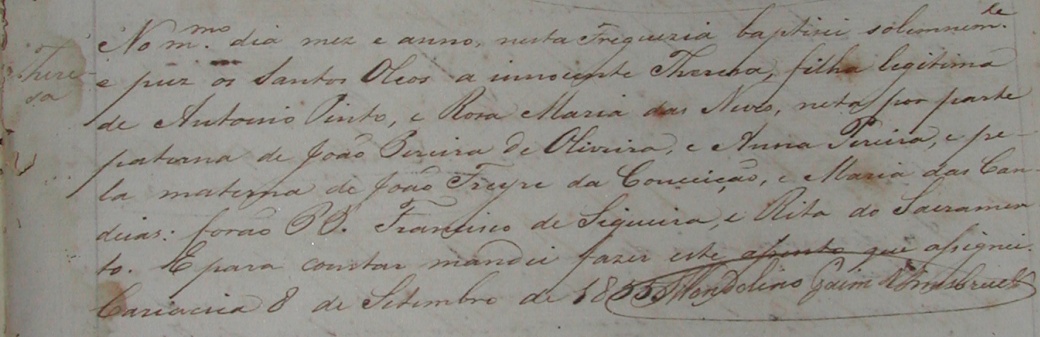 There-
sa
No m.mo dia mez e anno, nesta Freguezia baptisei solemnem.te
e puz os Santos Oleos a innocente Theresa, filha legitima
de Antonio Pinto, e Rosa Maria das Neves, neta por parte
paterna de João Pereira de Oliveira, e Anna Pereira, e pe-
la materna de João Freyre da Conceição, e Maria das Can-
deias: forão P.P. Francisco de Siqueira, e Rita do Sacramen
to. E para constar mandei fazer este assento que assignei.
Cariacica 8 de Setembro de 1855